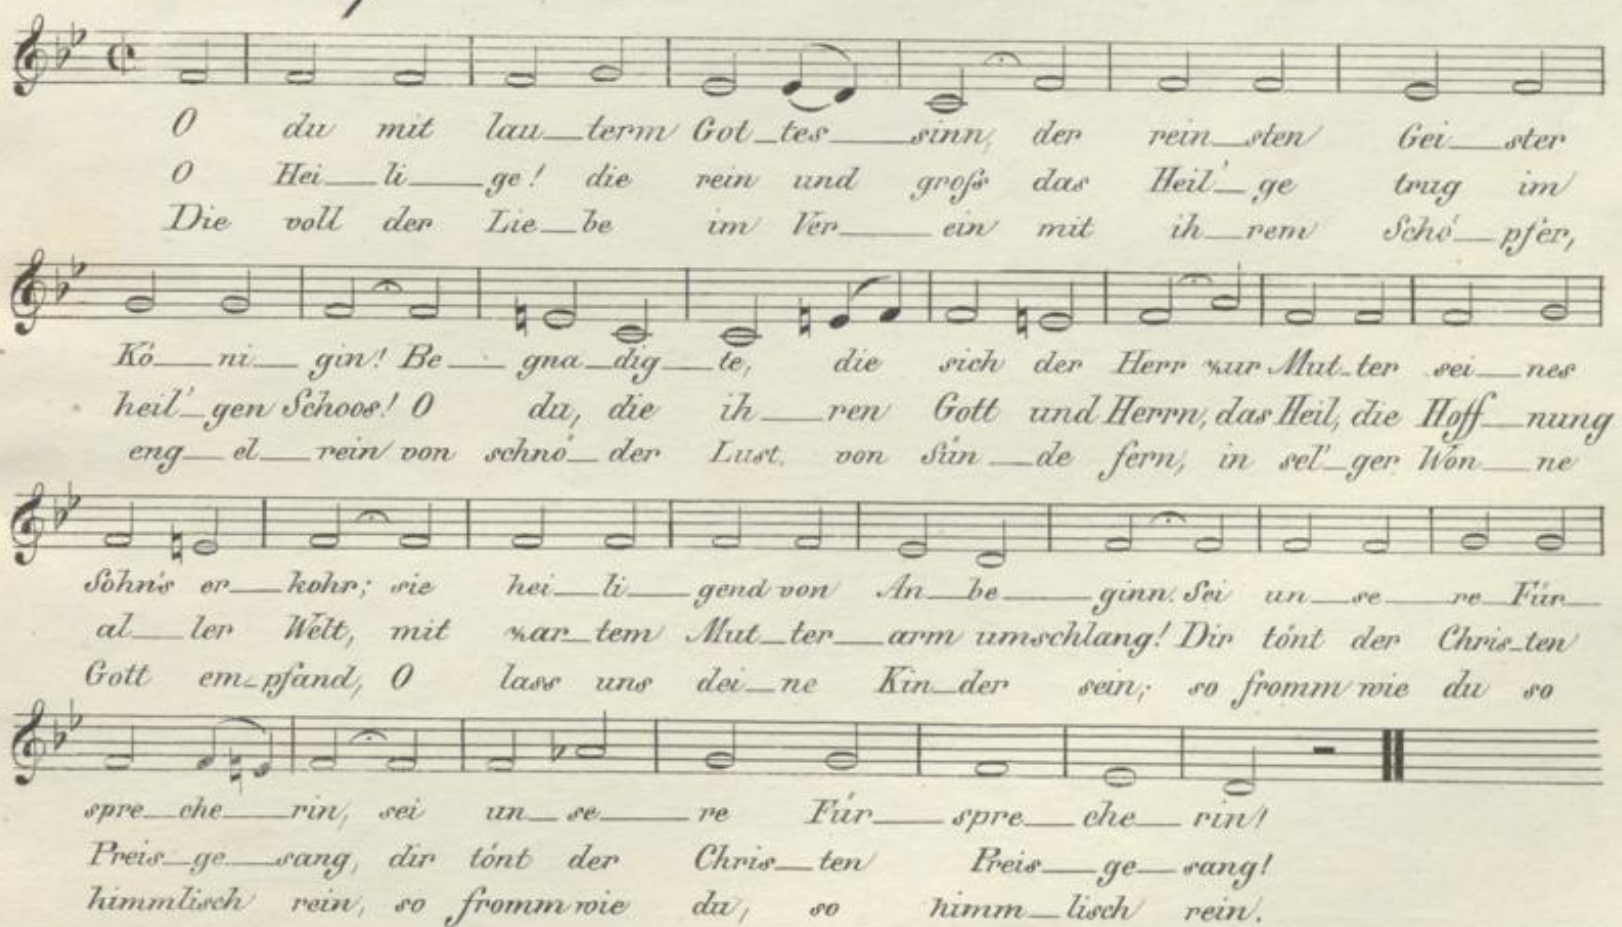 O du mit lau__term Got_tes___sinn, der rein__sten Gei__ster
O Hei__li___ge! die rein und groſs das Heil'_ge trug im
Die voll der Lie_be im Ver____ein mit ih__rem Schö_pfer,
Kö__ni__gin! Be__gna_dig__te, die sich der Herr zur Mut_ter sei__nes
heil'_gen Schoos! O du, die ih__ren Gott und Herrn, das Heil, die Hoff__nung
eng__el__rein von schnö_der Lust, von Sün__de fern, in sel'_ger Won__ne
Sohn's er__kohr; sie hei__li__gend von An__be___ginn. Sei un__se___re Für__
al__ler Welt, mit zar_tem Mut_ter__arm umschlang! Dir tönt der Chris_ten
Gott em_pfand, O lass uns dei_ne Kin_der sein; so fromm wie du so
spre__che___rin, sei un__se___re Für___spre___che__rin!
Preis_ge___sang, dir tönt der Chris__ten Preis___ge__sang!
himmlisch rein, so fromm wie du, so himm__lisch rein.